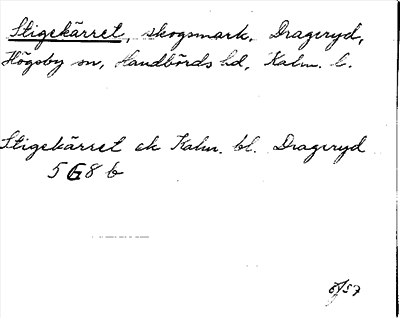 Stigekärret, skogsmark, Drageryd,
Högsby sn, Handbörds hd, Kalm. l.
Stigekärret ek Kalm. bl. Drageryd
5 G 8 b